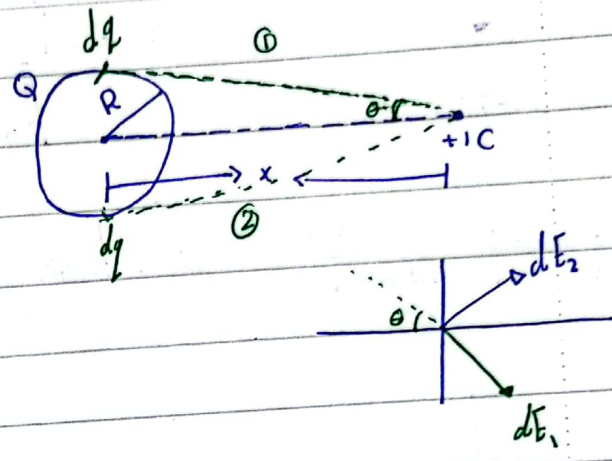 dq
①
Q
R
θ
+1C
x
②
dq
dE₂
θ
dE₁